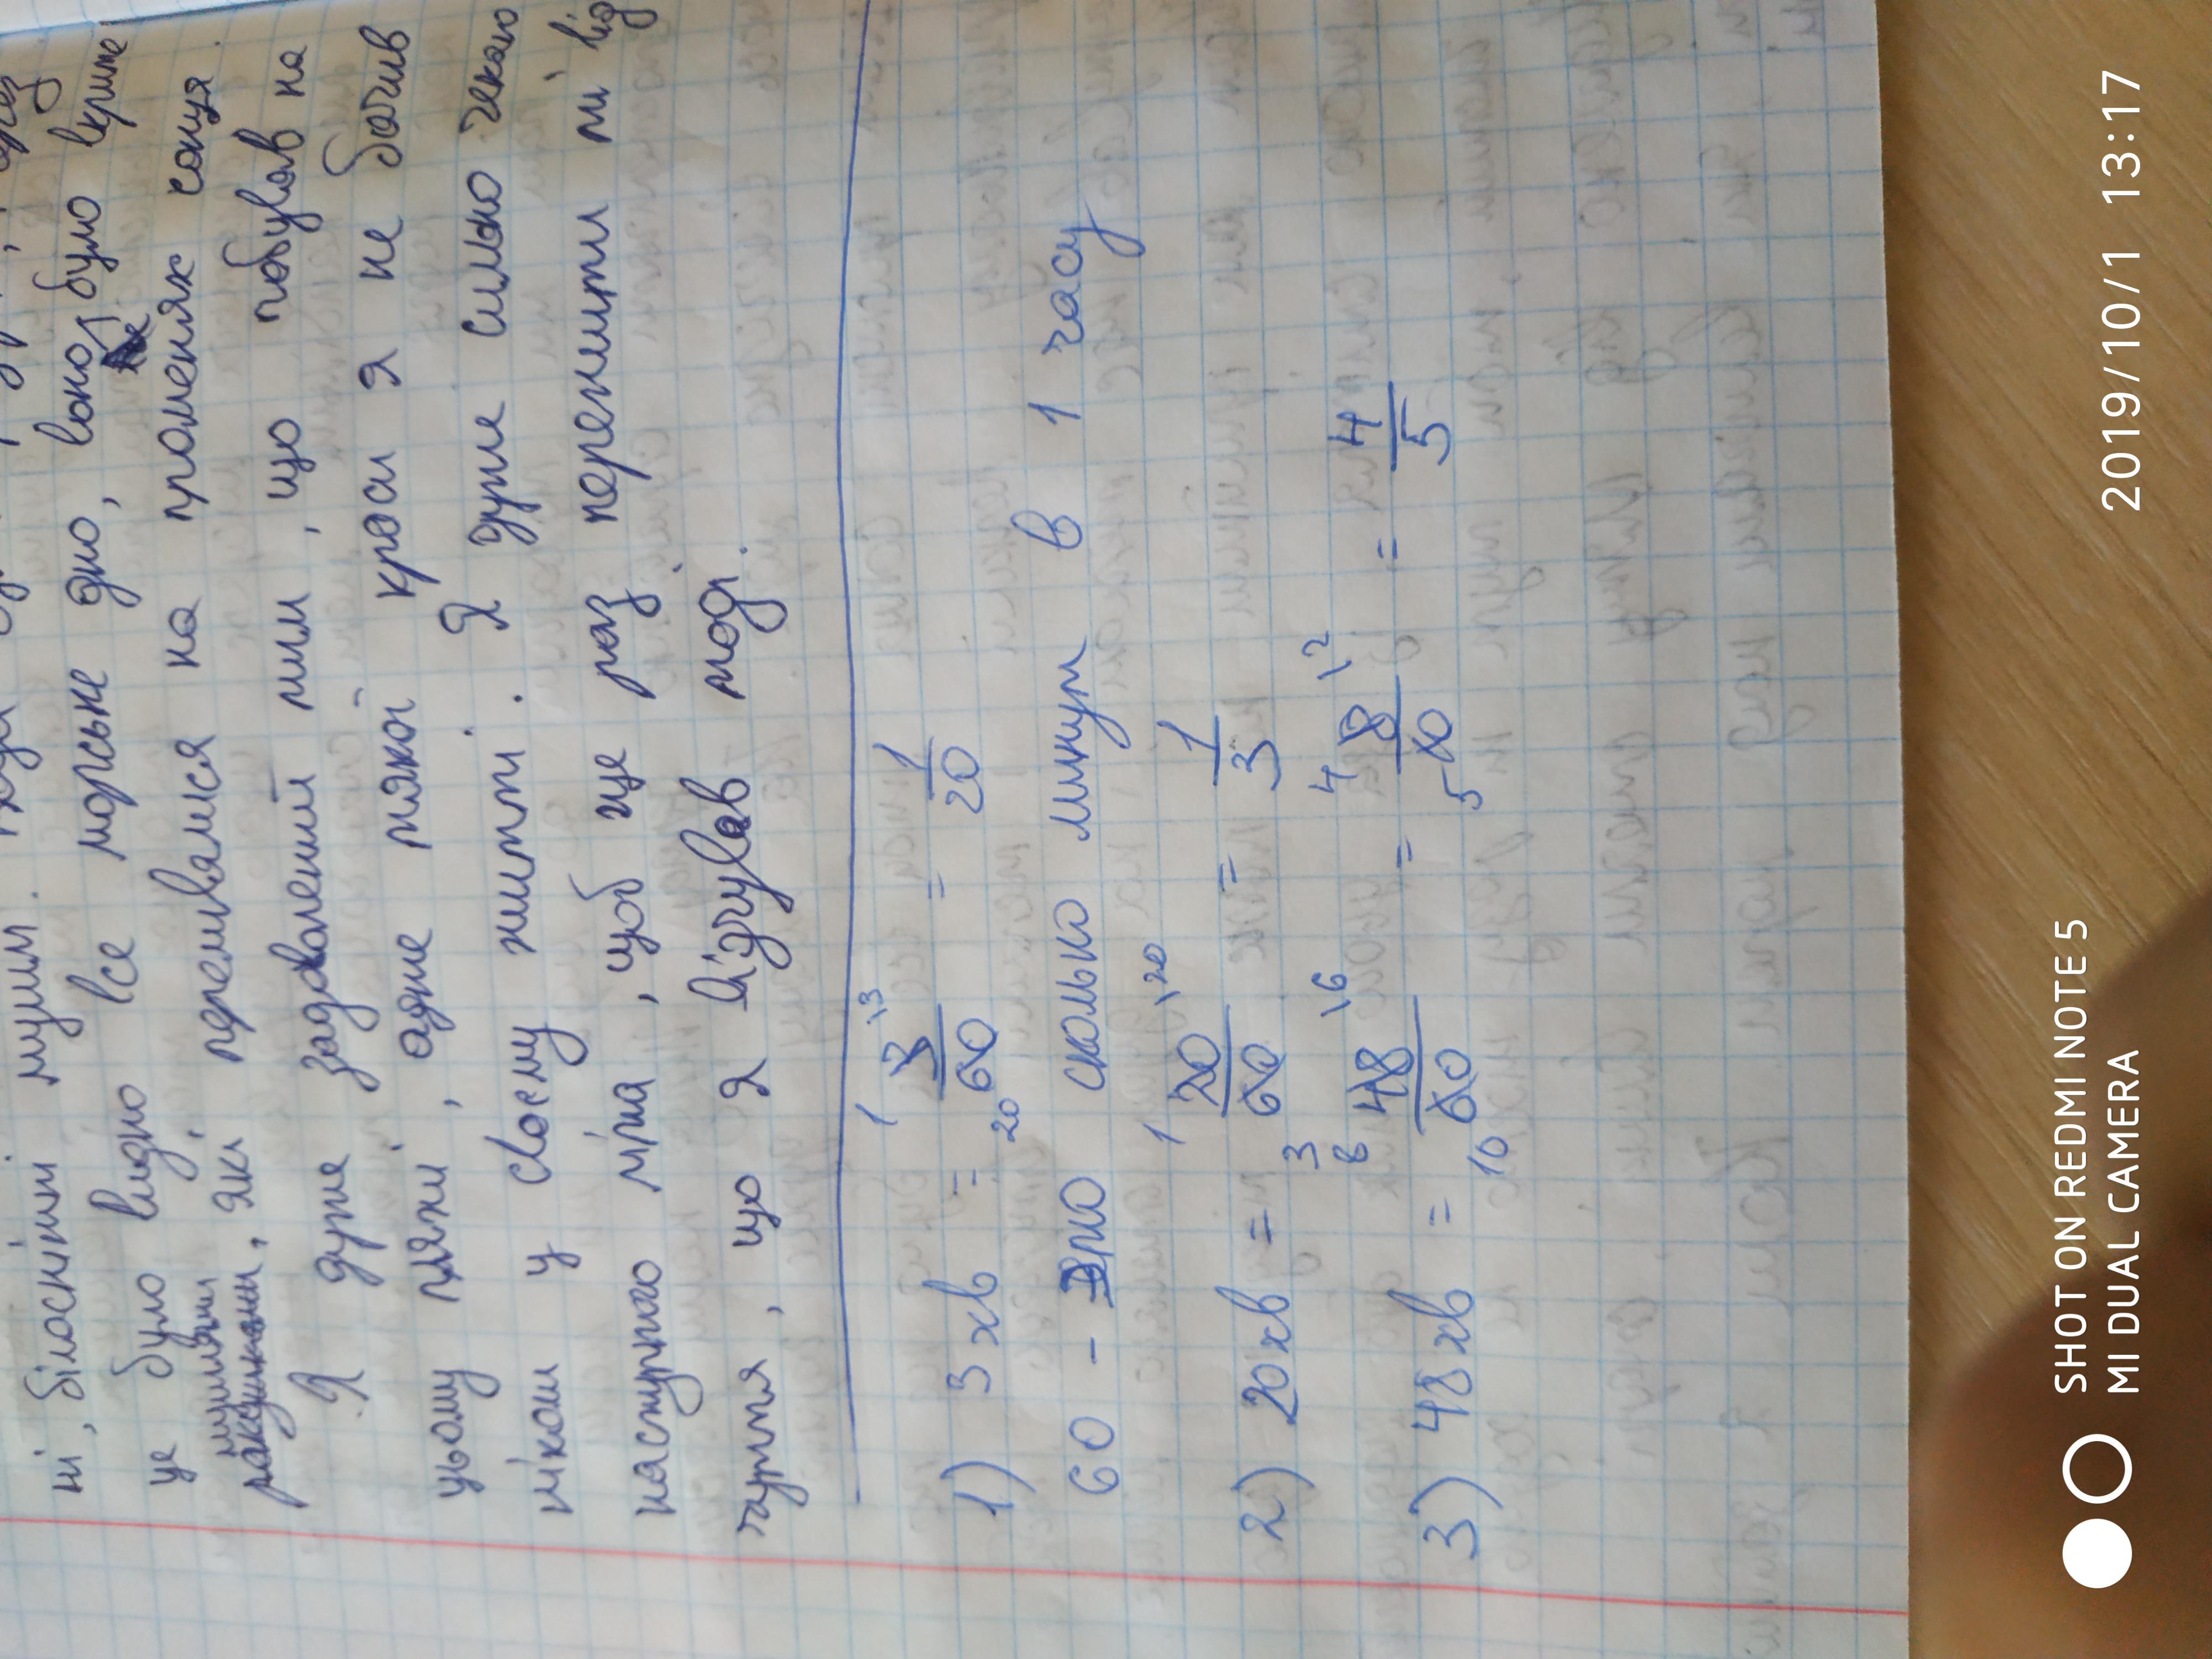 ні, білосніжні мушлі.
це було видно все морське дно, воно було вкрите
мушлями, які переливалися на променях сонця
Я дуже задоволений тим, що побував на
цьому пляжі, адже такої краси я не бачив
ніколи у своєму житті. Я дуже сильно чекаю
наступного літа, щоб ще раз пережити ті від
чуття, що я відчував тоді.
1) 3 хв = 3/60 \3 = 1/20
1 20
60 - это сколько минут в 1 часу
2) 20хв = 20/60 \20 = 1/3
1 3
3) 48хв = 48/60 \6 = 8/10 \2 = 4/5
8 10 4 5
SHOT ON REDMI NOTE 5
MI DUAL CAMERA
2019/10/1 13:17